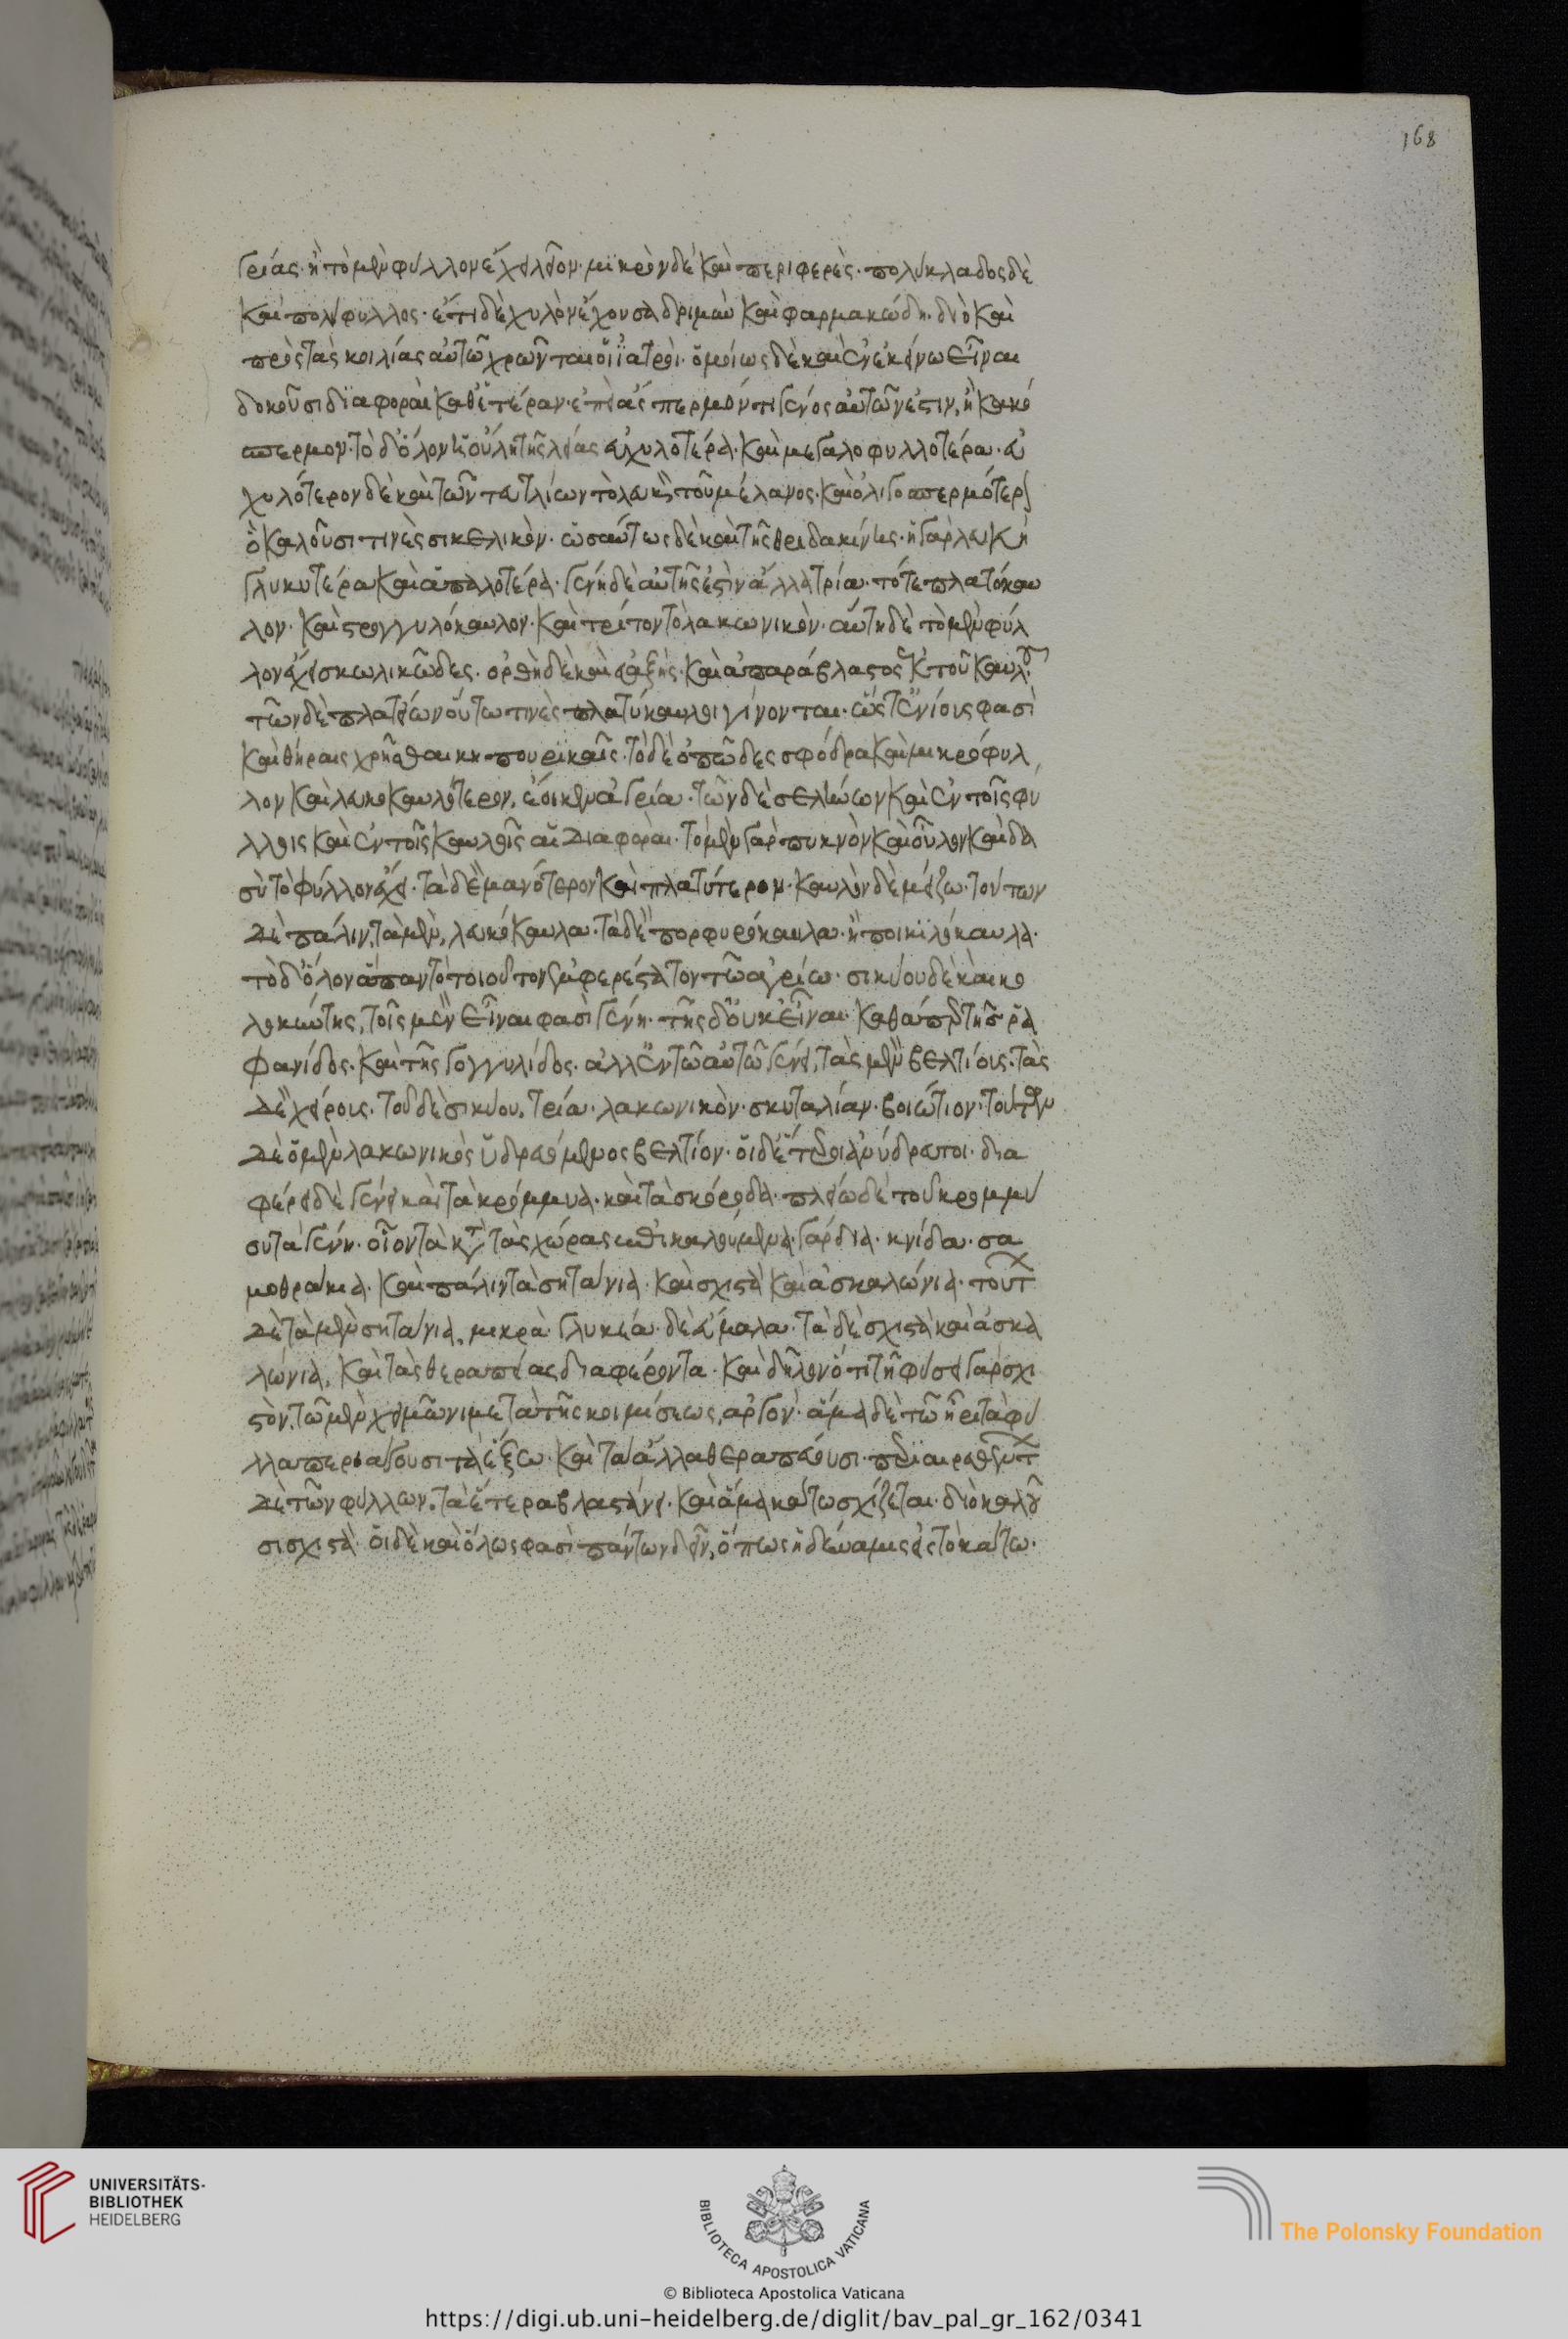 168
γρίας· ἢ τὸ μὲν φύλλον ἔχει λεῖον· μικρὸν δὲ καὶ περιφερὲς· πολύκλαδος δὲ
καὶ πολύφυλλος· ἔτι δὲ χυλὸν ἔχουσα δριμὺν καὶ φαρμακώδη· διὸ καὶ
πρὸς τὰς κοιλίας αὐτῶ χρῶνται οἱ ἰατροὶ· ὁμοίως δὲ καὶ ἐν ἐκείνω εἶναι
δοκοῦσι διαφοραὶ καθ' ἑτέραν· ἐπεὶ ἄσπερμόν τι γένος αὐτῶν ἐστιν, ἢ κακό
σπερμον· τὸ δ' ὅλον ἡ οὔλη τῆς λείας εὐχυλοτέρα· καὶ μεγαλοφυλλοτέρα· εὐ
χυλότερον δὲ καὶ τῶν τευτλίων τὸ λευκὸν τοῦ μέλανος· καὶ ὀλιγοσπερμότερον
ὃ καλοῦσι τινὲς σικελικὸν· ὡσαύτως δὲ καὶ τῆς θριδακίνης· ἡ γὰρ λευκὴ
γλυκυτέρα καὶ ἁπαλοτέρα· γένη δὲ αὐτῆς ἐστὶν ἄλλα τρία· τό τε πλατύκαυ
λον· καὶ στρογγυλόκαυλον· καὶ τρίτον τὸ λακωνικὸν· αὕτη δὲ τὸ μὲν φύλ
λον ἔχει σκωλικῶδες· ὀρθὴ δὲ καὶ εὐαξὴς· καὶ ἀπαράβλαστος ἐκ τοῦ καυλοῦ·
τῶν δὲ πλατειῶν οὕτω τινὲς πλατύκαυλοι γίνονται· ὥστ' ἐνίοις φασὶ
καὶ θύραις χρῆσθαι κηπουρικαῖς· τὸ δὲ ὀπῶδες σφόδρα καὶ μικρόφυλ
λον καὶ λευκοκαυλότερον, ἔοικεν ἀγρία· τῶν δὲ σελίνων καὶ ἐν τοῖς φύ
λλοις καὶ ἐν τοῖς καυλοῖς αἱ διαφοραὶ· τὸ μὲν γὰρ πυκνὸν καὶ οὖλον καὶ δα
σὺ τὸ φύλλον ἔχει· τὰ δὲ μανότερον καὶ πλατύτερον· καυλὸν δὲ μείζω· τούτων
δὲ πάλιν, τὰ μὲν, λευκόκαυλα· τὰ δὲ πορφυρόκαυλα· ἢ ποικιλόκαυλα·
τὸ δ' ὅλον ἅπαν τὸ τοιοῦτον ἐμφερέστατον τῶ ἀγρίω· σικύου δὲ καὶ κο
λοκύντης, τοῖς μὲν εἶναι φασὶ γένη· τῆς δ' οὐκ εἶναι· καθάπερ τῆς ῥα
φανίδος· καὶ τῆς γογγυλίδος· ἀλλ' ἐν τῶ αὐτῶ γένει, τὰς μὲν βελτίοις· τὰς
δὲ χείροις· τοῦ δὲ σικύου, τρία· λακωνικὸν· σκυταλίαν· βοιώτιον· τούτων
δὲ ὁ μὲν λακωνικὸς ὑδρευόμενος βελτίον· οἱ δὲ ἕτεροι ἀνύδρευτοι· δια
φέρει δὲ γένει καὶ τὰ κρόμμυα· καὶ τὰ σκόροδα· πλείω δὲ τοῦ κρομμύ
ου τὰ γένη· οἷον τὰ κατὰ τὰς χώρας ἐπικαλούμενα· σάρδια· κνίδια· σα
μοθράκια· καὶ πάλιν τὰ σητάνια· καὶ σχιστὰ καὶ ἀσκαλώνια· τούτων
δὲ τὰ μὲν σητάνια, μικρὰ· γλυκέα· δὲ εὖ μάλα· τὰ δὲ σχιστὰ καὶ ἀσκα
λώνια, καὶ ταῖς θεραπείαις διαφέροντα· καὶ δῆλον ὅτι τῆ φύσει γὰρ σχι
στὸν, τῶ μὲν χειμῶνι μετὰ τῆς κοιμήσεως, ἀργὸν· ἅμα δὲ τῶ ἦρι τὰ φύ
λλα περιαιροῦσι τὰ ἔξω· καὶ τὰ ἄλλα θεραπεύουσι· περιαιρεθέντων
δὲ τῶν φύλλων, τὰ ἕτερα βλαστάνει· καὶ ἅμα κάτω σχίζεται· διὸ καλοῦ
σι σχιστὰ· οἱ δὲ καὶ ὅλως φασὶ πάντων δεῖν, ὅπως ἡ δύναμις εἰς τὸ κάτω·
UNIVERSITÄTS-
BIBLIOTHEK
HEIDELBERG
BIBLIOTECA APOSTOLICA VATICANA
The Polonsky Foundation
© Biblioteca Apostolica Vaticana
https://digi.ub.uni-heidelberg.de/diglit/bav_pal_gr_162/0341